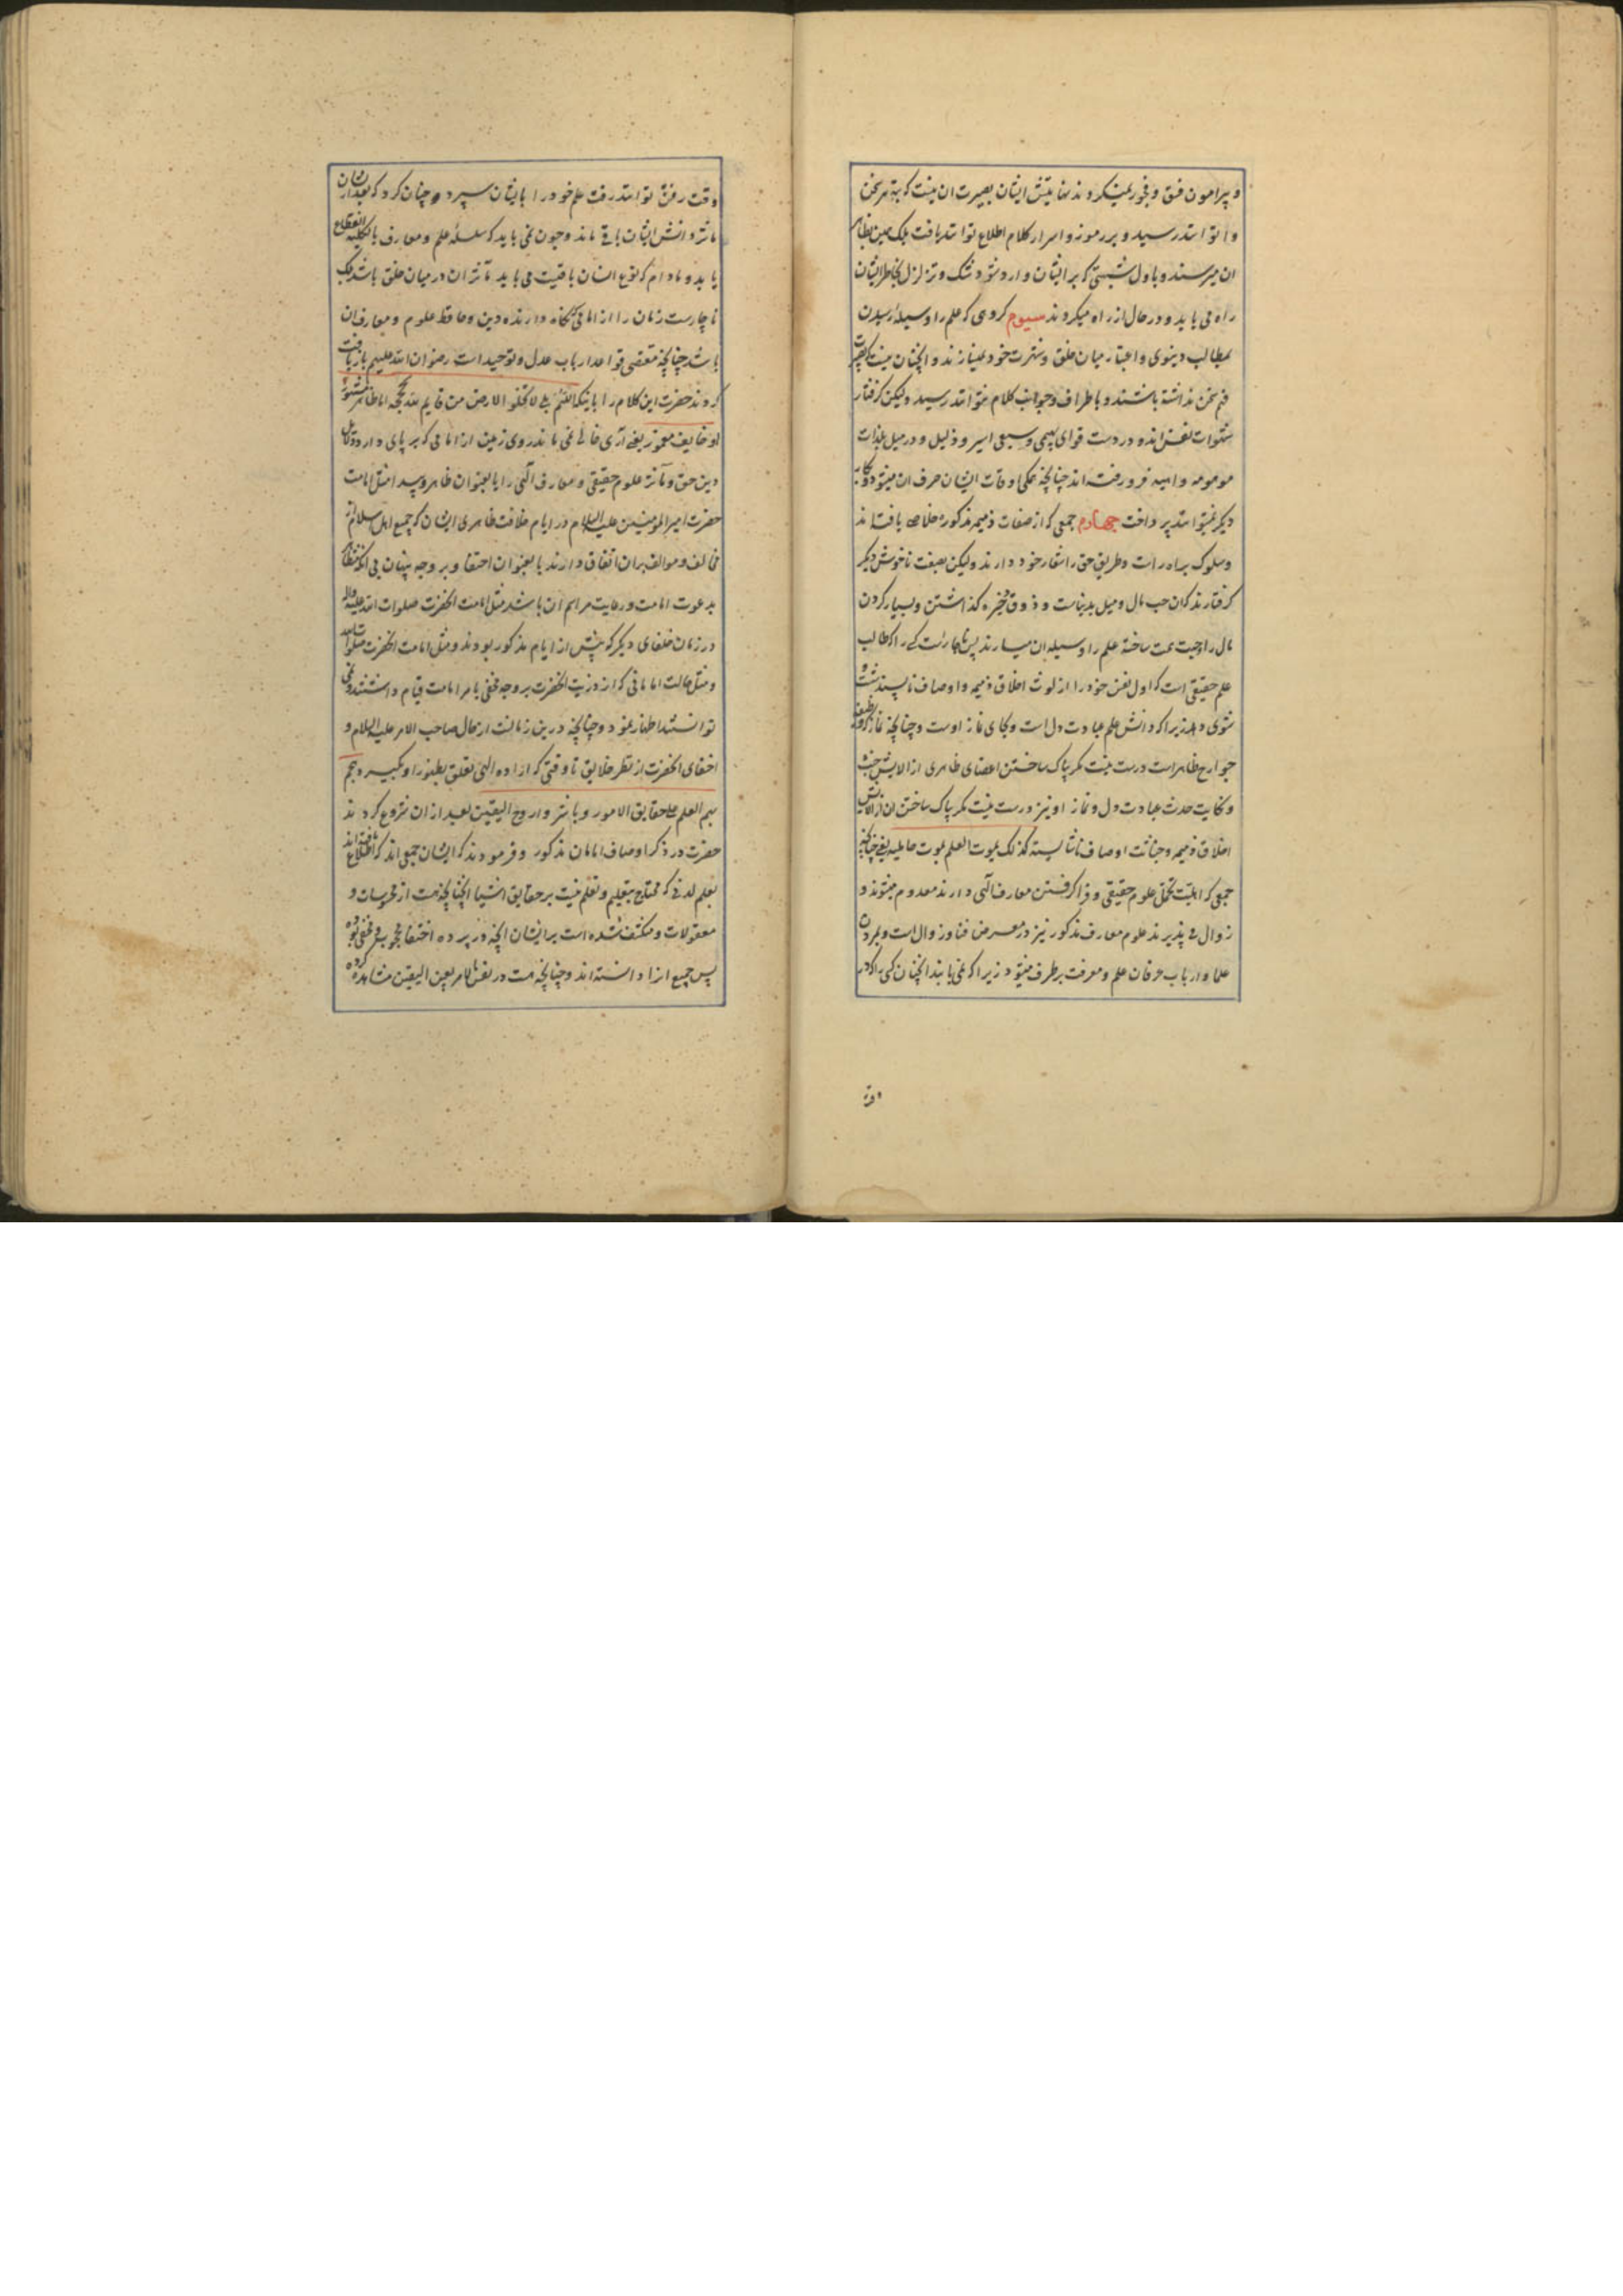 و پیرامون فسق و فجور نمیکردند نهایتش ایشان بصیرت ان نیست که بته هر سخن
وا توانند رسید و بر رموز و اسرار کلام اطلاع توانند یافت بلکه همین بظاهر
ان میرسند و باول شبهتی که بر ایشان وارد شود شک و تزلزل بخاطر ایشان
راه می یابد و در حال از راه میکردند سیوم کروهی که علم را وسیله رسیدن
بمطالب دنیوی و اعتبار میان خلق و شهرت خود نمیسازند و انچنان نیست که بصیرت
فهم سخن نداشته باشند و باطراف و جوانب کلام نتوانند رسید ولیکن کرفتار
شهوات نفس اند و در دست قوای بهیمی و سبعی اسیر و ذلیل و در میل بلذات
موهومه واهیه فرو رفته اند چنانچه همکی اوقات ایشان صرف ان میشود و بکار
دیکر نمیتوانند پرداخت چهارم جمعی که از صفات ذمیمه مذکوره خلاص یافته اند
و سلوک براه راست و طریق حق را شعار خود دارند ولیکن بصفت ناخوش دیکر
کرفتارند که ان حب مال و میل بدنیاست و ذوق ذخیره کذاشتن و بسیار کردن
مال را وجهت همت ساخته علم را وسیله ان میسازند پس ناچار است کسی را که طالب
علم حقیقی است که اول نفس خود را از لوث اخلاق ذمیمه و اوصاف ناپسند شست
شوی دهد زیرا که دانش علم عبادت دل است و بجای نماز اوست و چنانچه نماز که وظیفه
جوارح ظاهر است درست نیست مکر پاک ساختن اعضای ظاهری از الایش خبث
و نکایت حدث عبادت دل و نماز او نیز درست نیست مکر پاک ساختن ان از الایش
اخلاق ذمیمه و خباثت اوصاف ناشایسته کذلک یموت العلم بموت حاملیه یعنی چنانچه
جمعی که اهلیت تحمل علوم حقیقی و فرا کرفتن معارف الهی دارند معدوم میشوند و
زوال می پذیرند علوم معارف مذکور نیز در معرض فنا و زوال است و بمردن
علما و ارباب عرفان علم و معرفت برطرف میشود زیرا که نمی یابند انچنان کسی را که در
وقت رفتن توانند رفت علم خود را بایشان سپرد و چنان کرد که بعد از ایشان
ماثر دانش ایشان باقی ماند و چون نمی باید که سلسله علم و معارف بالکلیه انقطاع
یابد و مادام که نوع انسان باقیست می باید ماثر ان در میان خلق باشد بلکه
ناچارست زمان را از امامی نکاه دارنده دین و حافظ علوم و معارف ان
باشد چنانچه مقتضی قواعد ارباب عدل و توحید است رضوان الله علیهم بازیافت
کردند حضرت این کلام را باینکه اللهم بلی لا تخلو الارض من قایم لله بحجه اما ظاهر مشهور
او خایف مغمور یعنی آری خالی نمی ماند روی زمین از امامی که بر پای دارد دلایل
دین حق و ماثر علوم حقیقی و معارف الهی را یا بعنوان ظاهر و پیدا مثل امامت
حضرت امیر المومنین علیه السلام در ایام خلافت ظاهری ایشان که جمیع اهل اسلام از
مخالف و موالف بران اتفاق دارند یا بعنوان اختفا و بر وجه پنهان بی انکه تظاهر
بدعوت امامت و رعایت مراسم ان باشد مثل امامت انحضرت صلوات الله علیه و اله
در زمان خلفای دیکر که پیش از ایام مذکور بودند و مثل امامت انحضرت صلوات الله
و مثل حالت امامانی که از ذریت انحضرت بر وجه مخفی بامر امامت قیام داشتند و نمی
توانستند اظهار نمود و چنانچه درین زمانست از حال صاحب الامر علیه السلام و
اخفای انحضرت از نظر خلایق تا وقتی که اراده الهی تعلق بظهور او بکیرد هجم
بهم العلم علی حقایق الامور و باشروا روح الیقین بعد از ان شروع کردند
حضرت در ذکر اوصاف امامان مذکور و فرمودند که ایشان جمعی اند که اطلاع یافته اند
بعلم لدنی که محتاج بتعلیم و تعلم نیست بر حقایق اشیا انچنانچه هست از محسوسات و
معقولات و منکشف شده است بر ایشان انچه در پرده اختفا محجوب و مخفی بوده
پس جمیع انرا دانسته اند و چنانچه هست در نفس الامر بعین الیقین مشاهده کرده
وقت